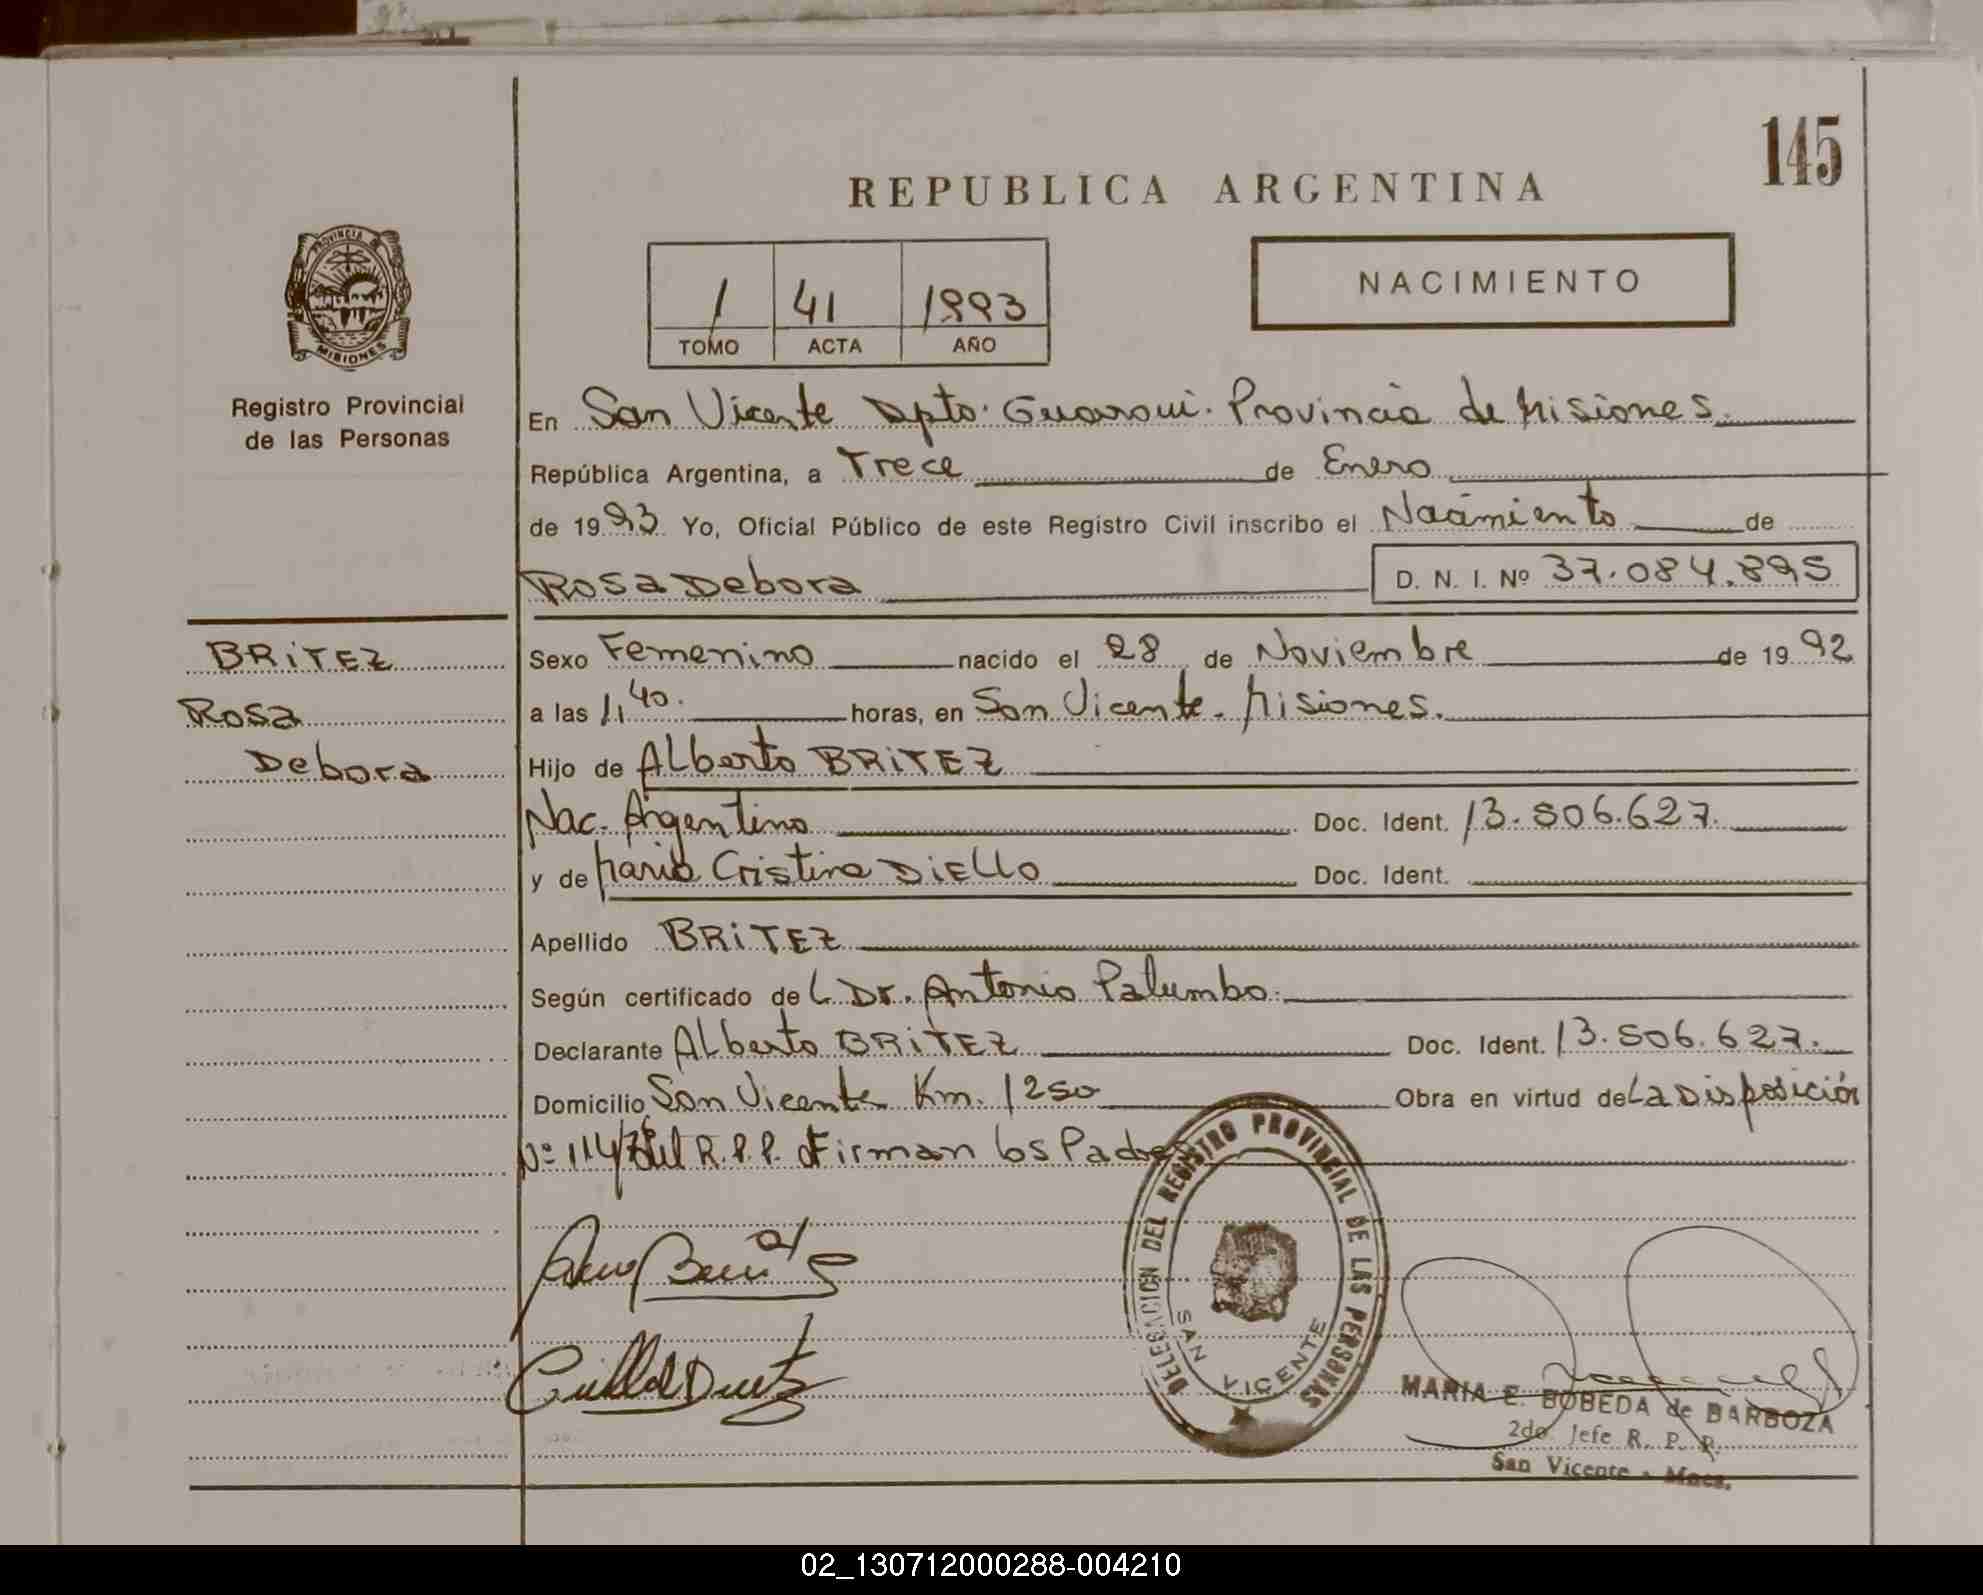 145
REPUBLICA ARGENTINA
PROVINCIA DE
MISIONES
Registro Provincial
de las Personas
1 41 1993
TOMO ACTA AÑO
NACIMIENTO
En San Vicente Dpto. Guarani. Provincia de Misiones.
República Argentina, a Trece de Enero
de 1993 Yo, Oficial Público de este Registro Civil inscribo el Nacimiento de
Rosa Debora D. N. I. Nº 37.084.895
BRITEZ
Rosa
Debora
Sexo Femenino nacido el 28 de Noviembre de 1992
a las 1,40. horas, en San Vicente. Misiones.
Hijo de Alberto BRITEZ
Nac. Argentino Doc. Ident. 13.506.627.
y de Maria Cristina DIELLO Doc. Ident.
Apellido BRITEZ
Según certificado de L Dr. Antonio Palumbo.
Declarante Alberto BRITEZ Doc. Ident. 13.506.627.
Domicilio San Vicente Km. 1250 Obra en virtud de La Disposición
Nº 114/76 del R.P.P. Firman los Padres
DELEGACION DEL REGISTRO PROVINCIAL DE LAS PERSONAS
SAN VICENTE
MARIA E. BOBEDA de BARBOZA
2do. Jefe R. P. P.
San Vicente - Mnes.
02_130712000288-004210